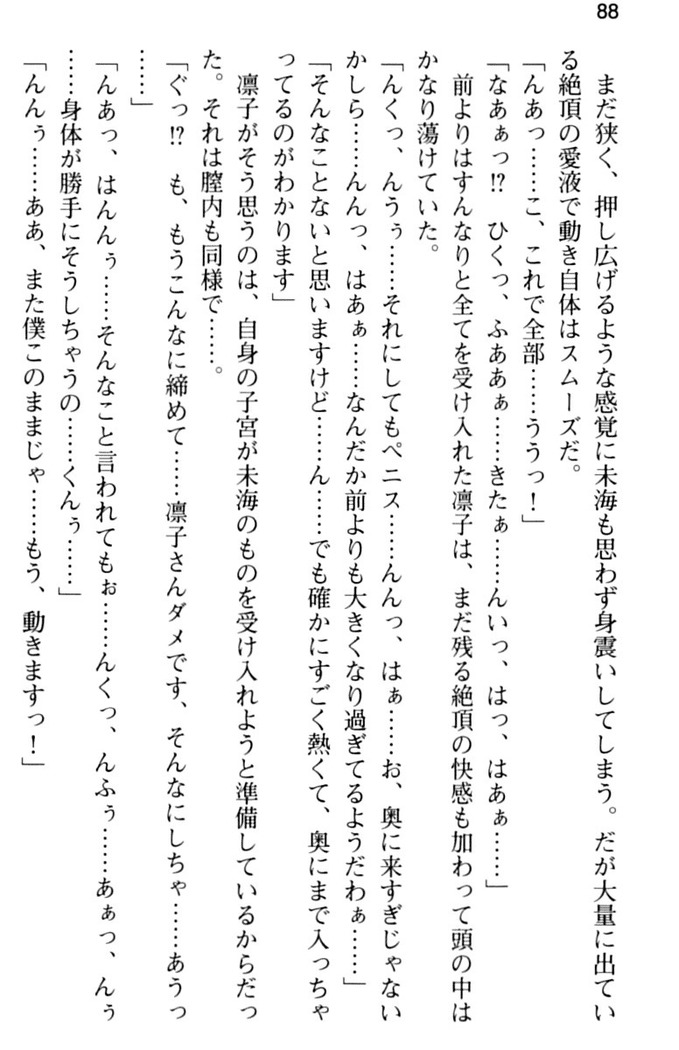 88
まだ狭く、押し広げるような感覚に未海も思わず身震いしてしまう。だが大量に出てい
る絶頂の愛液で動き自体はスムーズだ。
「んあっ……こ、これで全部……ううっ！」
「なあぁっ!?　ひくっ、ふああぁ……きたぁ……んいっ、はっ、はあぁ……」
前よりはすんなりと全てを受け入れた凛子は、まだ残る絶頂の快感も加わって頭の中は
かなり蕩けていた。
「んくっ、んうぅ……それにしてもペニス……んんっ、はぁ……お、奥に来すぎじゃない
かしら……んんっ、はあぁ……なんだか前よりも大きくなり過ぎてるようだわぁ……」
「そんなことないと思いますけど……ん……でも確かにすごく熱くて、奥にまで入っちゃ
ってるのがわかります」
凛子がそう思うのは、自身の子宮が未海のものを受け入れようと準備しているからだっ
た。それは膣内も同様で……。
「ぐっ!?　も、もうこんなに締めて……凛子さんダメです、そんなにしちゃ……あうっ
……」
「んあっ、はんんぅ……そんなこと言われてもぉ……んくっ、んふぅ……あぁっ、んぅ
……身体が勝手にそうしちゃうの……くんぅ……」
「んんぅ……ああ、また僕このままじゃ……もう、動きますっ！」